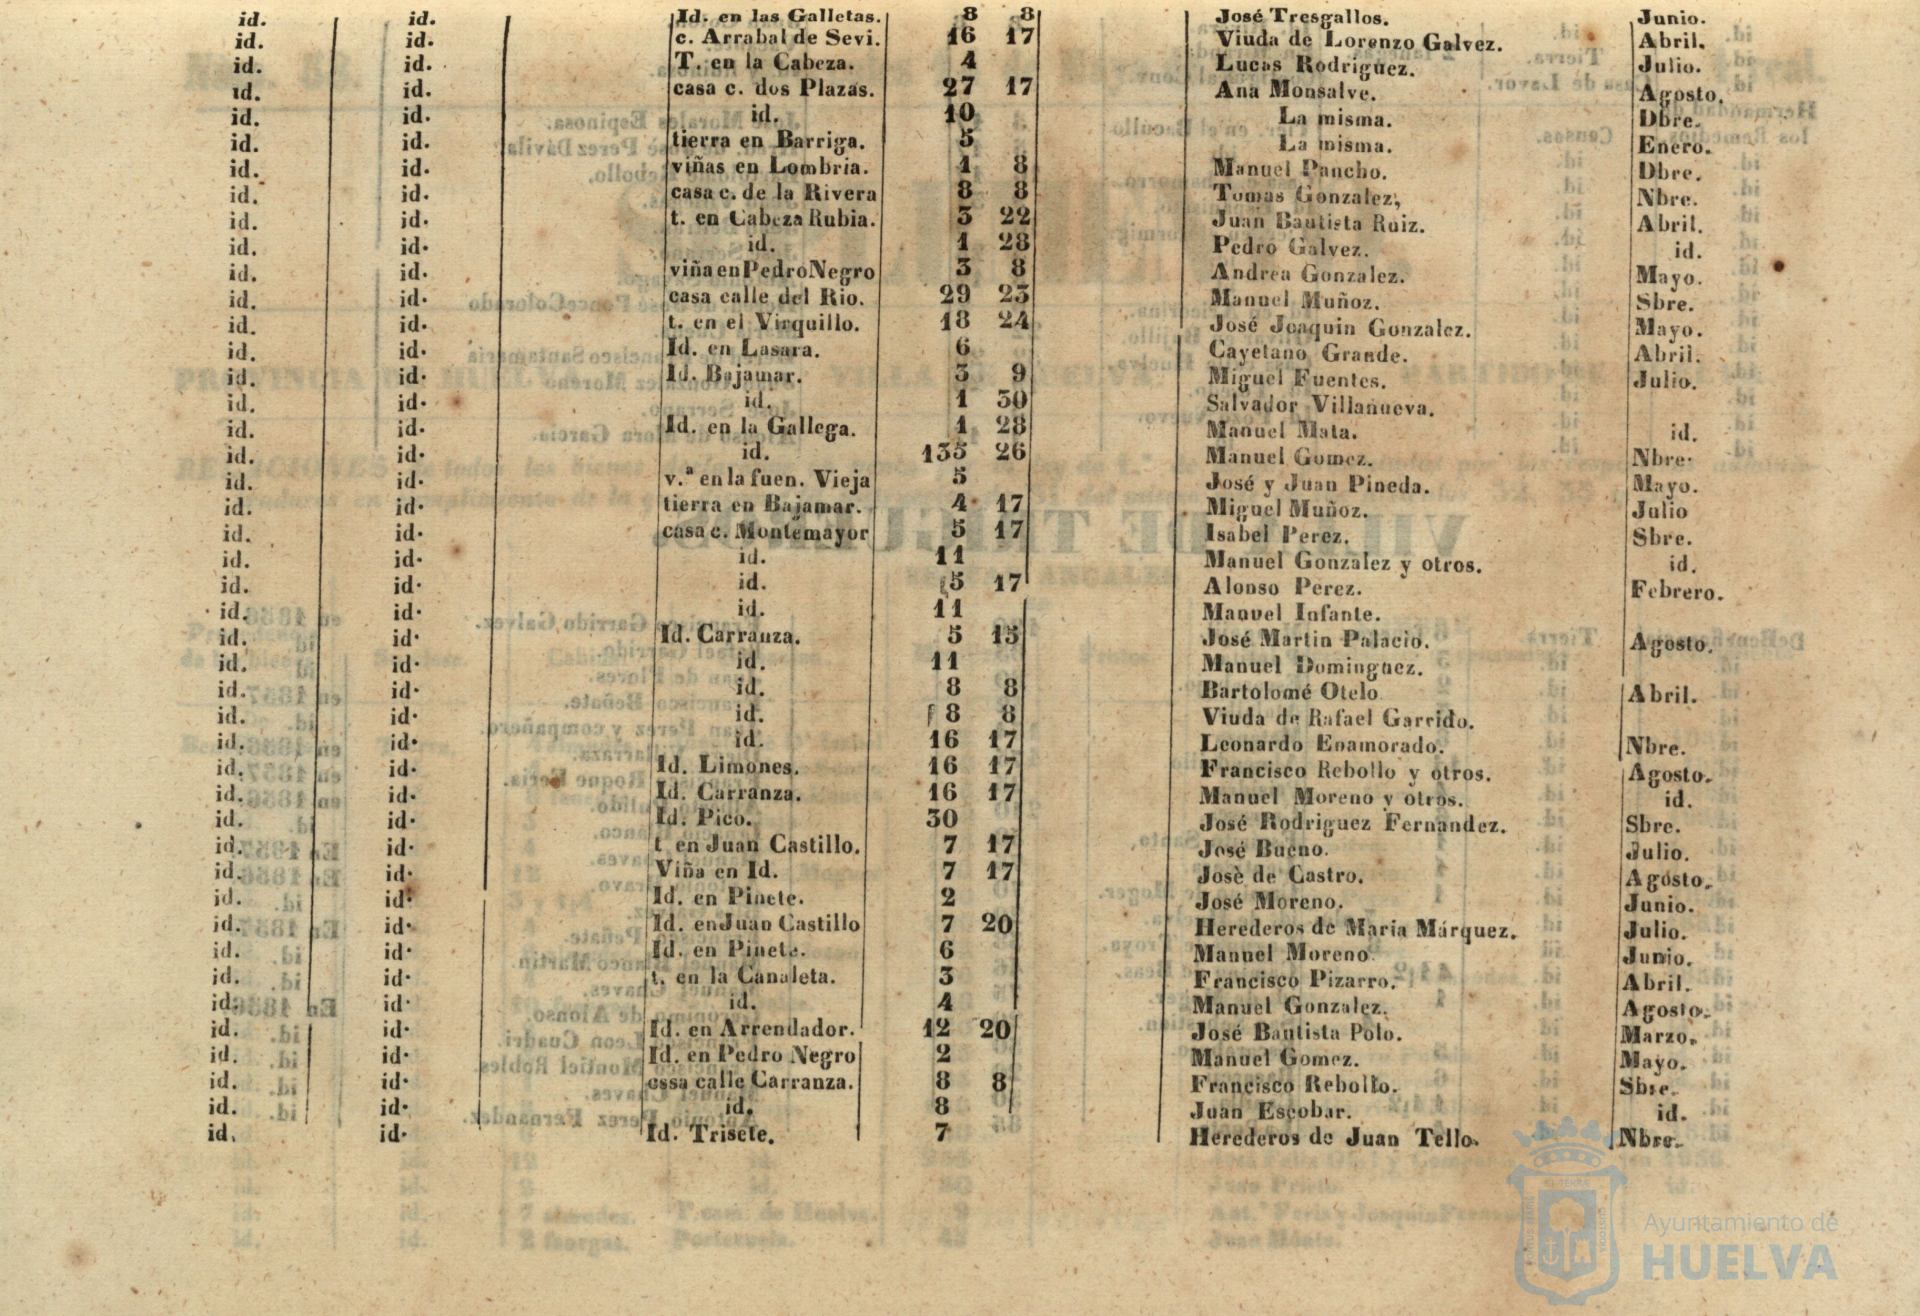 id. id. Id. en las Galletas. 8 8 José Tresgallos. Junio.
id. id. c. Arrabal de Sevi. 16 17 Viuda de Lorenzo Galvez. Abril.
id. id. T. en la Cabeza. 4 Lucas Rodriguez. Julio.
id. id. casa c. dos Plazas. 27 17 Ana Monsalve. Agosto.
id. id. id. 10 La misma. Dbre.
id. id. tierra en Barriga. 5 La misma. Enero.
id. id. viñas en Lombria. 1 8 Manuel Pancho. Dbre.
id. id. casa c. de la Rivera 8 8 Tomas Gonzalez, Nbre.
id. id. t. en Cabeza Rubia. 3 22 Juan Bautista Ruiz. Abril.
id. id. id. 1 28 Pedro Galvez. id.
id. id. viña en Pedro Negro 3 8 Andrea Gonzalez. Mayo.
id. id. casa calle del Rio. 29 23 Manuel Muñoz. Sbre.
id. id. t. en el Virquillo. 18 24 José Joaquin Gonzalez. Mayo.
id. id. Id. en Lasara. 6 Cayetano Grande. Abril.
id. id. Id. Bajamar. 3 9 Miguel Fuentes. Julio.
id. id. id. 1 30 Salvador Villanueva.
id. id. Id. en la Gallega. 1 28 Manuel Mata. id.
id. id. id. 135 26 Manuel Gomez. Nbre.
id. id. v.ª en la fuen. Vieja 5 José y Juan Pineda. Mayo.
id. id. tierra en Bajamar. 4 17 Miguel Muñoz. Julio
id. id. casa c. Montemayor 5 17 Isabel Perez. Sbre.
id. id. id. 11 Manuel Gonzalez y otros. id.
id. id. id. 5 17 Alonso Perez. Febrero.
id. id. id. 11 Manuel Infante.
id. id. Id. Carranza. 5 15 José Martin Palacio. Agosto.
id. id. id. 11 Manuel Dominguez.
id. id. id. 8 8 Bartolomé Otelo Abril.
id. id. id. 8 8 Viuda de Rafael Garrido.
id. id. id. 16 17 Leonardo Enamorado. Nbre.
id. id. Id. Limones. 16 17 Francisco Rebollo y otros. Agosto.
id. id. Id. Carranza. 16 17 Manuel Moreno y otros. id.
id. id. Id. Pico. 30 José Rodriguez Fernandez. Sbre.
id. id. t en Juan Castillo. 7 17 José Bueno. Julio.
id. id. Viña en Id. 7 17 Josè de Castro. Agosto.
id. id. Id. en Pinete. 2 José Moreno. Junio.
id. id. Id. en Juan Castillo 7 20 Herederos de Maria Márquez. Julio.
id. id. Id. en Pinete. 6 Manuel Moreno Junio.
id. id. t. en la Canaleta. 3 Francisco Pizarro. Abril.
id. id. id. 4 Manuel Gonzalez. Agosto.
id. id. Id. en Arrendador. 12 20 José Bautista Polo. Marzo.
id. id. Id. en Pedro Negro 2 Manuel Gomez. Mayo.
id. id. essa calle Carranza. 8 8 Francisco Rebollo. Sbre.
id. id. id. 8 Juan Escobar. id.
id. id. Id. Trisete. 7 Herederos de Juan Tello. Nbre.
Ayuntamiento de
HUELVA